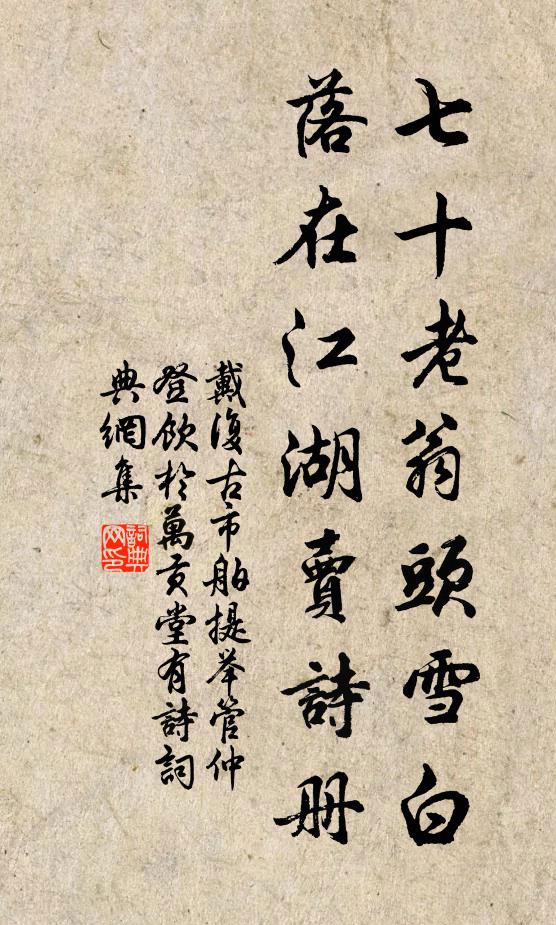 七十老翁頭雪白
落在江湖賣詩册
戴復古市舶提举管仲
登飲於萬貢堂有詩詞
典網集
詞典網印